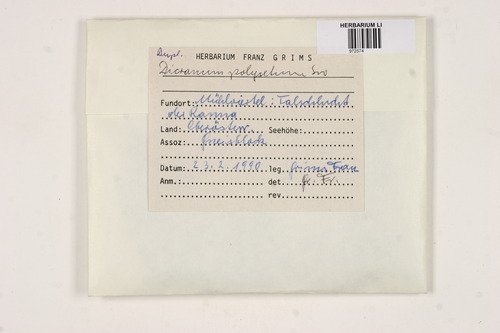 HERBARIUM LI
972574
Dupl. HERBARIUM FRANZ GRIMS
Dicranum polysetum Sw
Fundort: Mühlviertel: Talschlucht
der Ranna
Land: Oberösterr. Seehöhe:
Assoz: Gneisblock
Datum: 23.2.1990 leg. Grims Franz
Anm.: det. Gr. Fr.
rev.